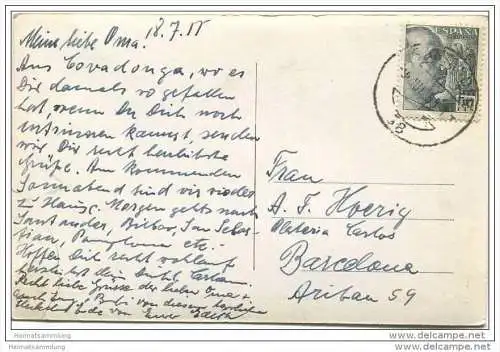 Meine liebe Oma! 18.7.55
Aus Covadonga, wo es
Dir damals so gefallen
hat, wenn Du Dich noch
entsinnen kannst, senden
wir Dir recht herzliche
Grüße. Am kommenden
Sonnabend sind wir wieder
zu Hause. Morgen gehts nach
Santander, Bilbao, San Sebas-
tian, Pamplona etc.
Hoffen Dich recht wohlauf
herzlichst Dein
Recht liebe Grüsse der lieben Oma
von diesem herrlichen
von Eurer Edith
ESPAÑA
Frau
A. F. Hoerig
Plateria Carlos
Barcelona
Aribau 59
Heimatsammlung
www.heimatsammlung.de
Heimatsammlung
www.heimatsammlung.de